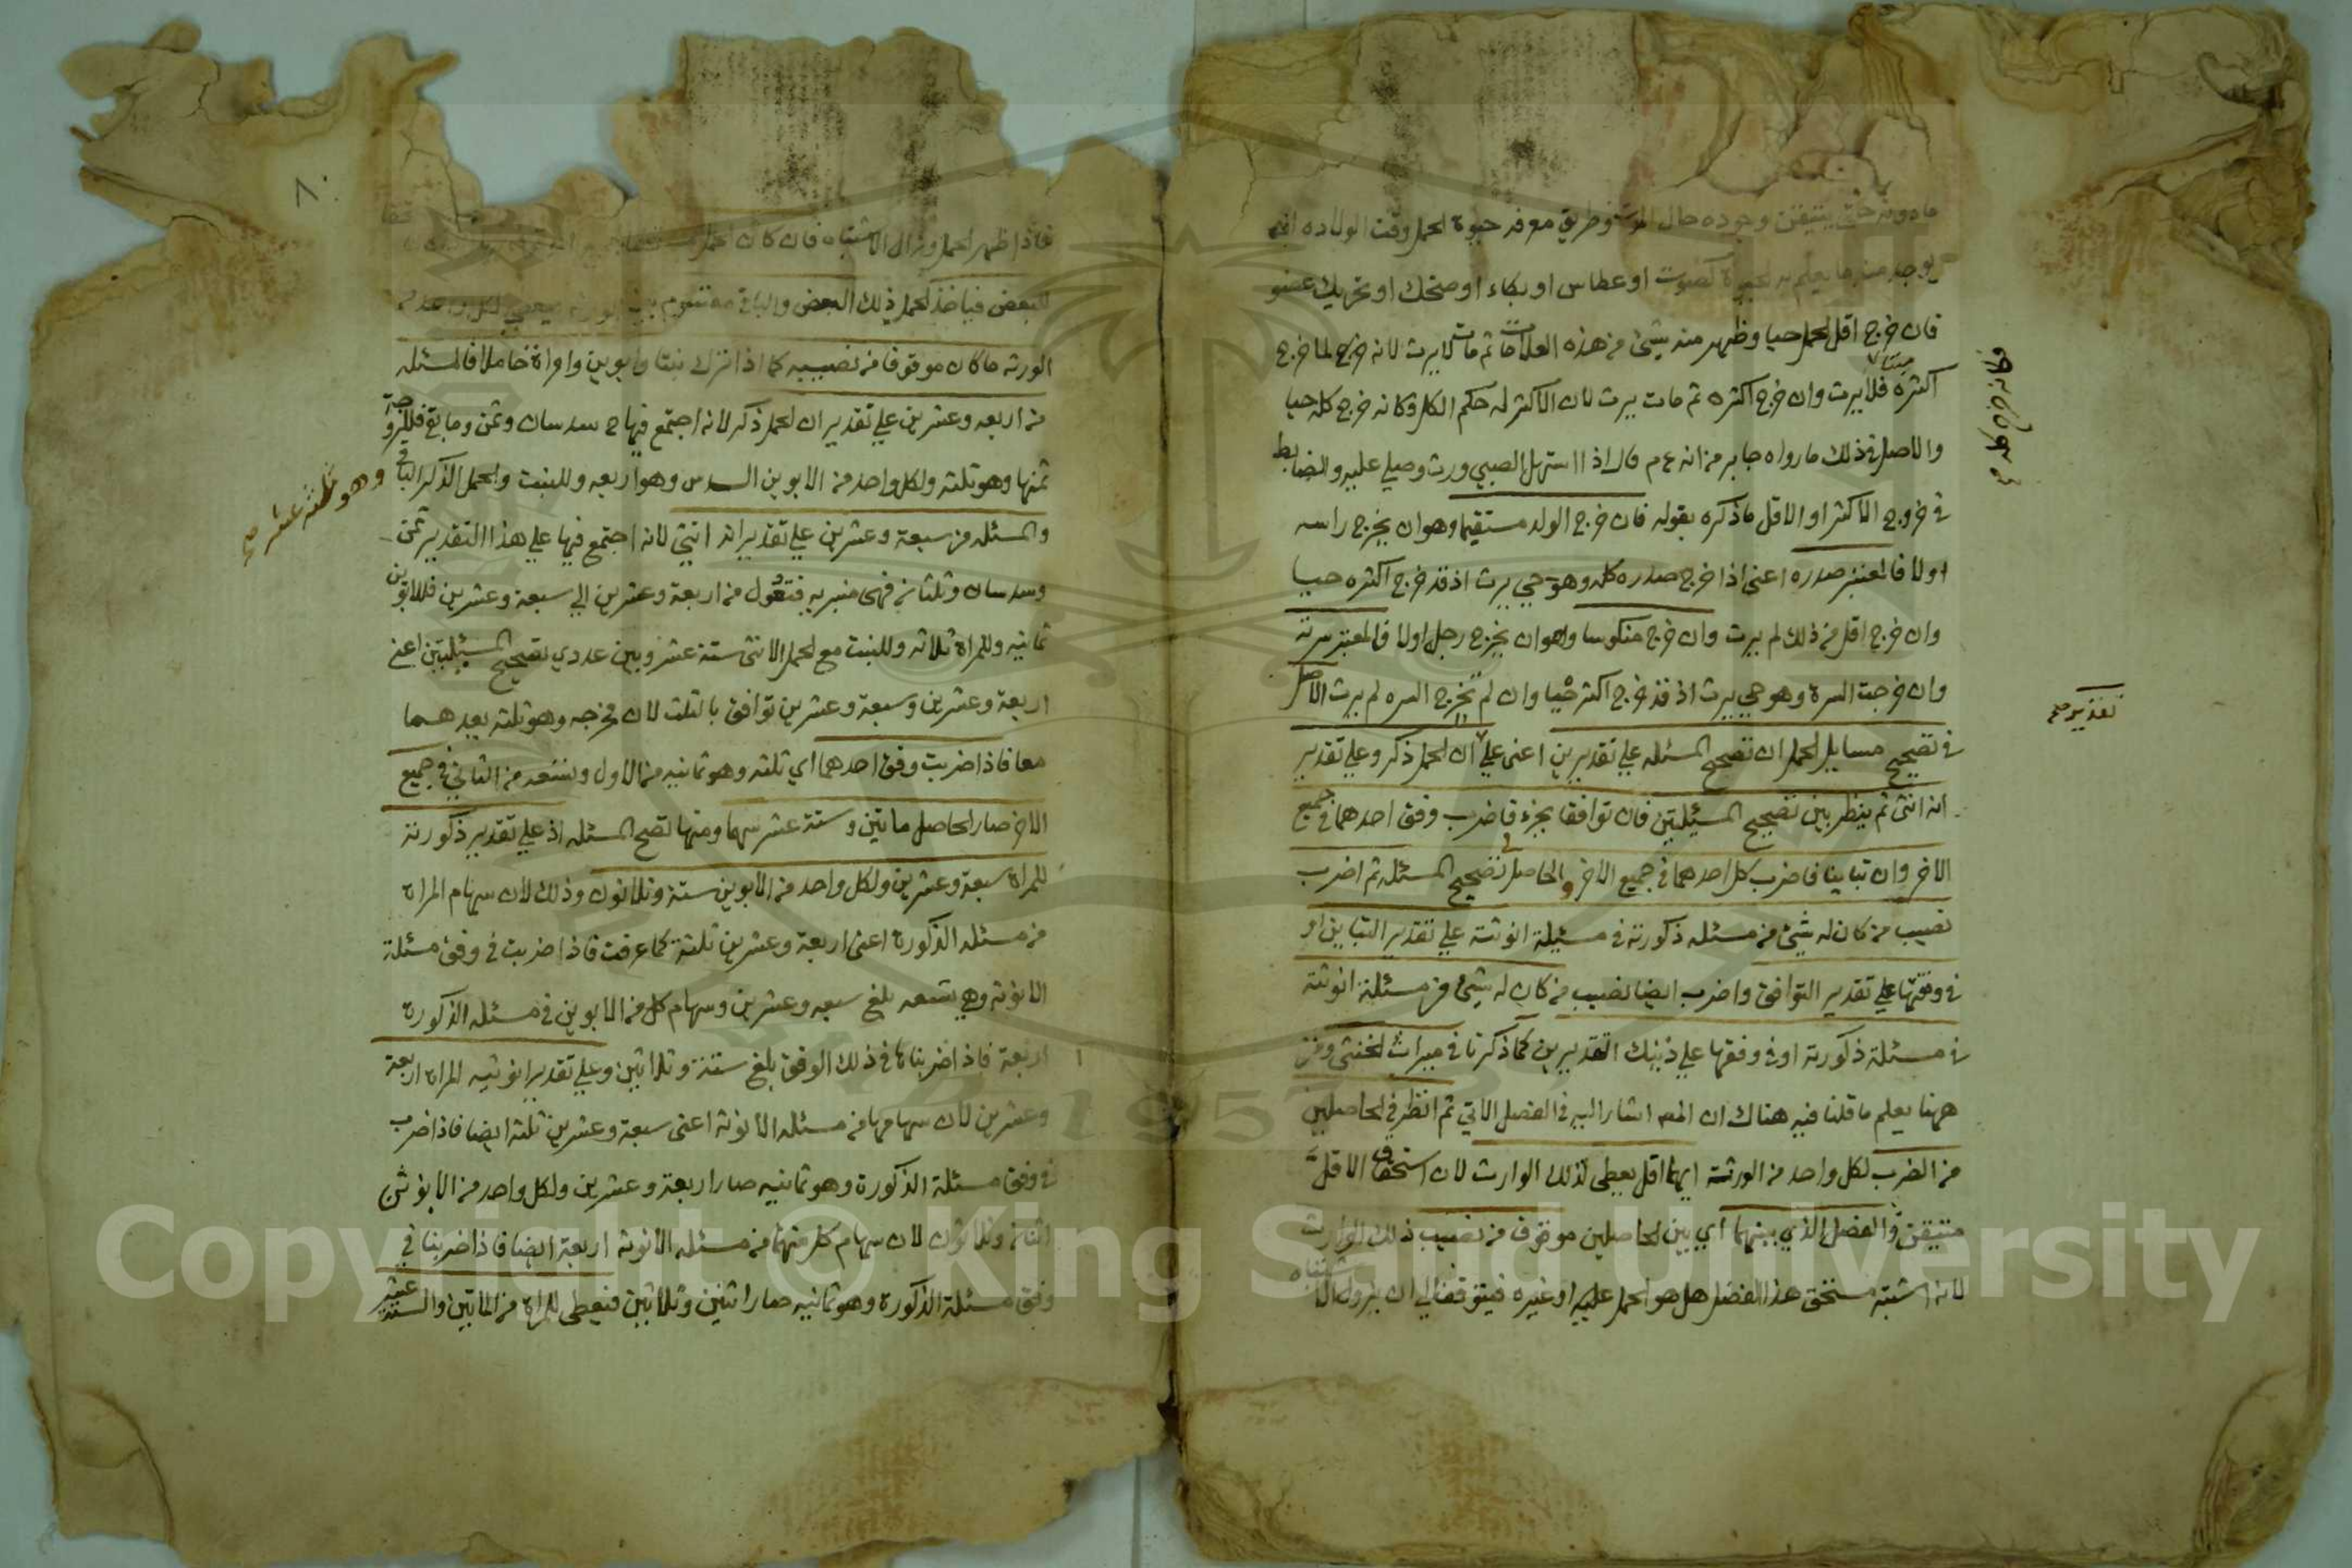 مادونه حتى يتيقن وجوده حال الموت وطريق معرفة حيوة الحمل وقت الولاده انه
يوجد منه ما يعلم به الحيوة كصوت او عطاس او بكاء او ضحك او تحريك عضو
فان خرج اقل الحمل حيا وظهر منه شيئ من هذه العلامات ثم مات لا يرث لانه خرج لما خرج
اكثره ميتا فلا يرث وان خرج اكثره ثم مات يرث لان الاكثر له حكم الكل وكانه خرج كله حيا
والاصل في ذلك ما رواه جابر من انه عم قال اذا استهل الصبي ورث وصلي عليه والضابط
في خروج الاكثر او الاقل ما ذكره بقوله فان خرج الولد مستقيما وهو ان يخرج راسه
اولا فالمعتبر صدره اعنى اذا خرج صدره كله وهو حي يرث اذ قد خرج اكثره حيا
وان خرج اقل من ذلك لم يرث وان خرج منكوسا وهو ان يخرج رجل اولا فالمعتبر سرته
وان خرجت السرة وهو حي يرث اذ قد خرج اكثر حيا وان لم تخرج السره لم يرث الاصل
في تصحيح مسايل الحمل ان تصحح المسئله علي تقديرين اعنى علي ان الحمل ذكر وعلي تقدير
تقدير صح
انه انثى ثم ينظر بين تصحيح المسئلتين فان توافقا بجزء فاضرب وفق احدهما في جميع
الاخر وان تباينا فاضرب كل احدهما في جميع الاخر والحاصل تصحيح المسئله ثم اضرب
نصيب من كان له شيئ من مسئله ذكورته في مسئلة انوثته علي تقدير التباين او
في وفقها علي تقدير التوافق واضرب ايضا نصيب من كان له شيئ من مسئلة انوثته
في مسئلة ذكورته او في وفقها علي ذينك التقديرين كما ذكرنا في ميراث الخنثى ومن
ههنا يعلم ما قلنا فيه هناك ان المص اشار اليه في الفصل الاتي ثم انظر في الحاصلين
من الضرب لكل واحد من الورثة ايهما اقل يعطى لذلك الوارث لان استحقاق الاقل
متيقن والفضل الذي بينهما اي بين الحاصلين موقوف من نصيب ذلك الوارث
لانه اشتبه مستحق هذا الفضل هل هو الحمل عليه او غيره فيتوقف الي ان يزول الاشتباه
٨٠
فاذا ظهر الحمل وزال الاشتباه فان كان الحمل
للبعض فياخذ الحمل ذلك البعض والباقي مقسوم بين الورثه فيعطي لكل واحد من
الورثه ما كان موقوفا من نصيبه كما اذا ترك بنتا وابوين وامراة حاملا فالمسئله
من اربعه وعشرين علي تقدير ان الحمل ذكر لانه اجتمع فيها ح سدسان وثمن وما بقى فللزوجة
ثمنها وهو ثلثه ولكل واحد من الابوين السدس وهو اربعه وللبنت والحمل الذكر الباقي
وهو ثلثه عشر صح
والمسئله من سبعة وعشرين علي تقدير انه انثى لانه اجتمع فيها علي هذا التقدير ثمن
وسدسان وثلثان فهى منبريه فتعول من اربعة وعشرين الي سبعة وعشرين فللابوين
ثمانيه وللمراة ثلاثه وللبنت مع الحمل الانثى ستة عشر وبين عددي تصحيح المسئلتين اعنى
اربعة وعشرين وسبعة وعشرين توافق بالثلث لان مخرجه وهو ثلثه يعدهما
معا فاذا ضربت وفق احدهما اي ثلثه وهو ثمانيه من الاول وتسعه من الثاني في جميع
الاخر صار الحاصل مايتين وستة عشر سهما ومنها تصح المسئله اذ علي تقدير ذكورته
للمراة سبعة وعشرين ولكل واحد من الابوين ستة وثلاثون وذلك لان سهام المراة
من مسئله الذكورة اعنى اربعة وعشرين ثلثة كما عرفت فاذا ضربت في وفق مسئلة
الانوثة وهي تسعه بلغ سبعه وعشرين وسهام كل من الابوين في مسئله الذكورة
اربعة فاذا ضربناها في ذلك الوفق بلغ ستة وثلاثين وعلي تقدير انوثيه المراة اربعة
وعشرين لان سهامها من مسئله الانوثة اعنى سبعة وعشرين ثلثة ايضا فاذا ضرب
في وفق مسئلة الذكورة وهو ثمانيه صار اربعة وعشرين ولكل واحد من الابوين
اثنان وثلاثون لان سهام كل منهما من مسئله الانوثة اربعة ايضا فاذا ضربنا في
وفق مسئلة الذكورة وهو ثمانيه صار اثنين وثلاثين فيعطى للمراة من المايتين والستة عشر
Copyright © King Saud University
1957